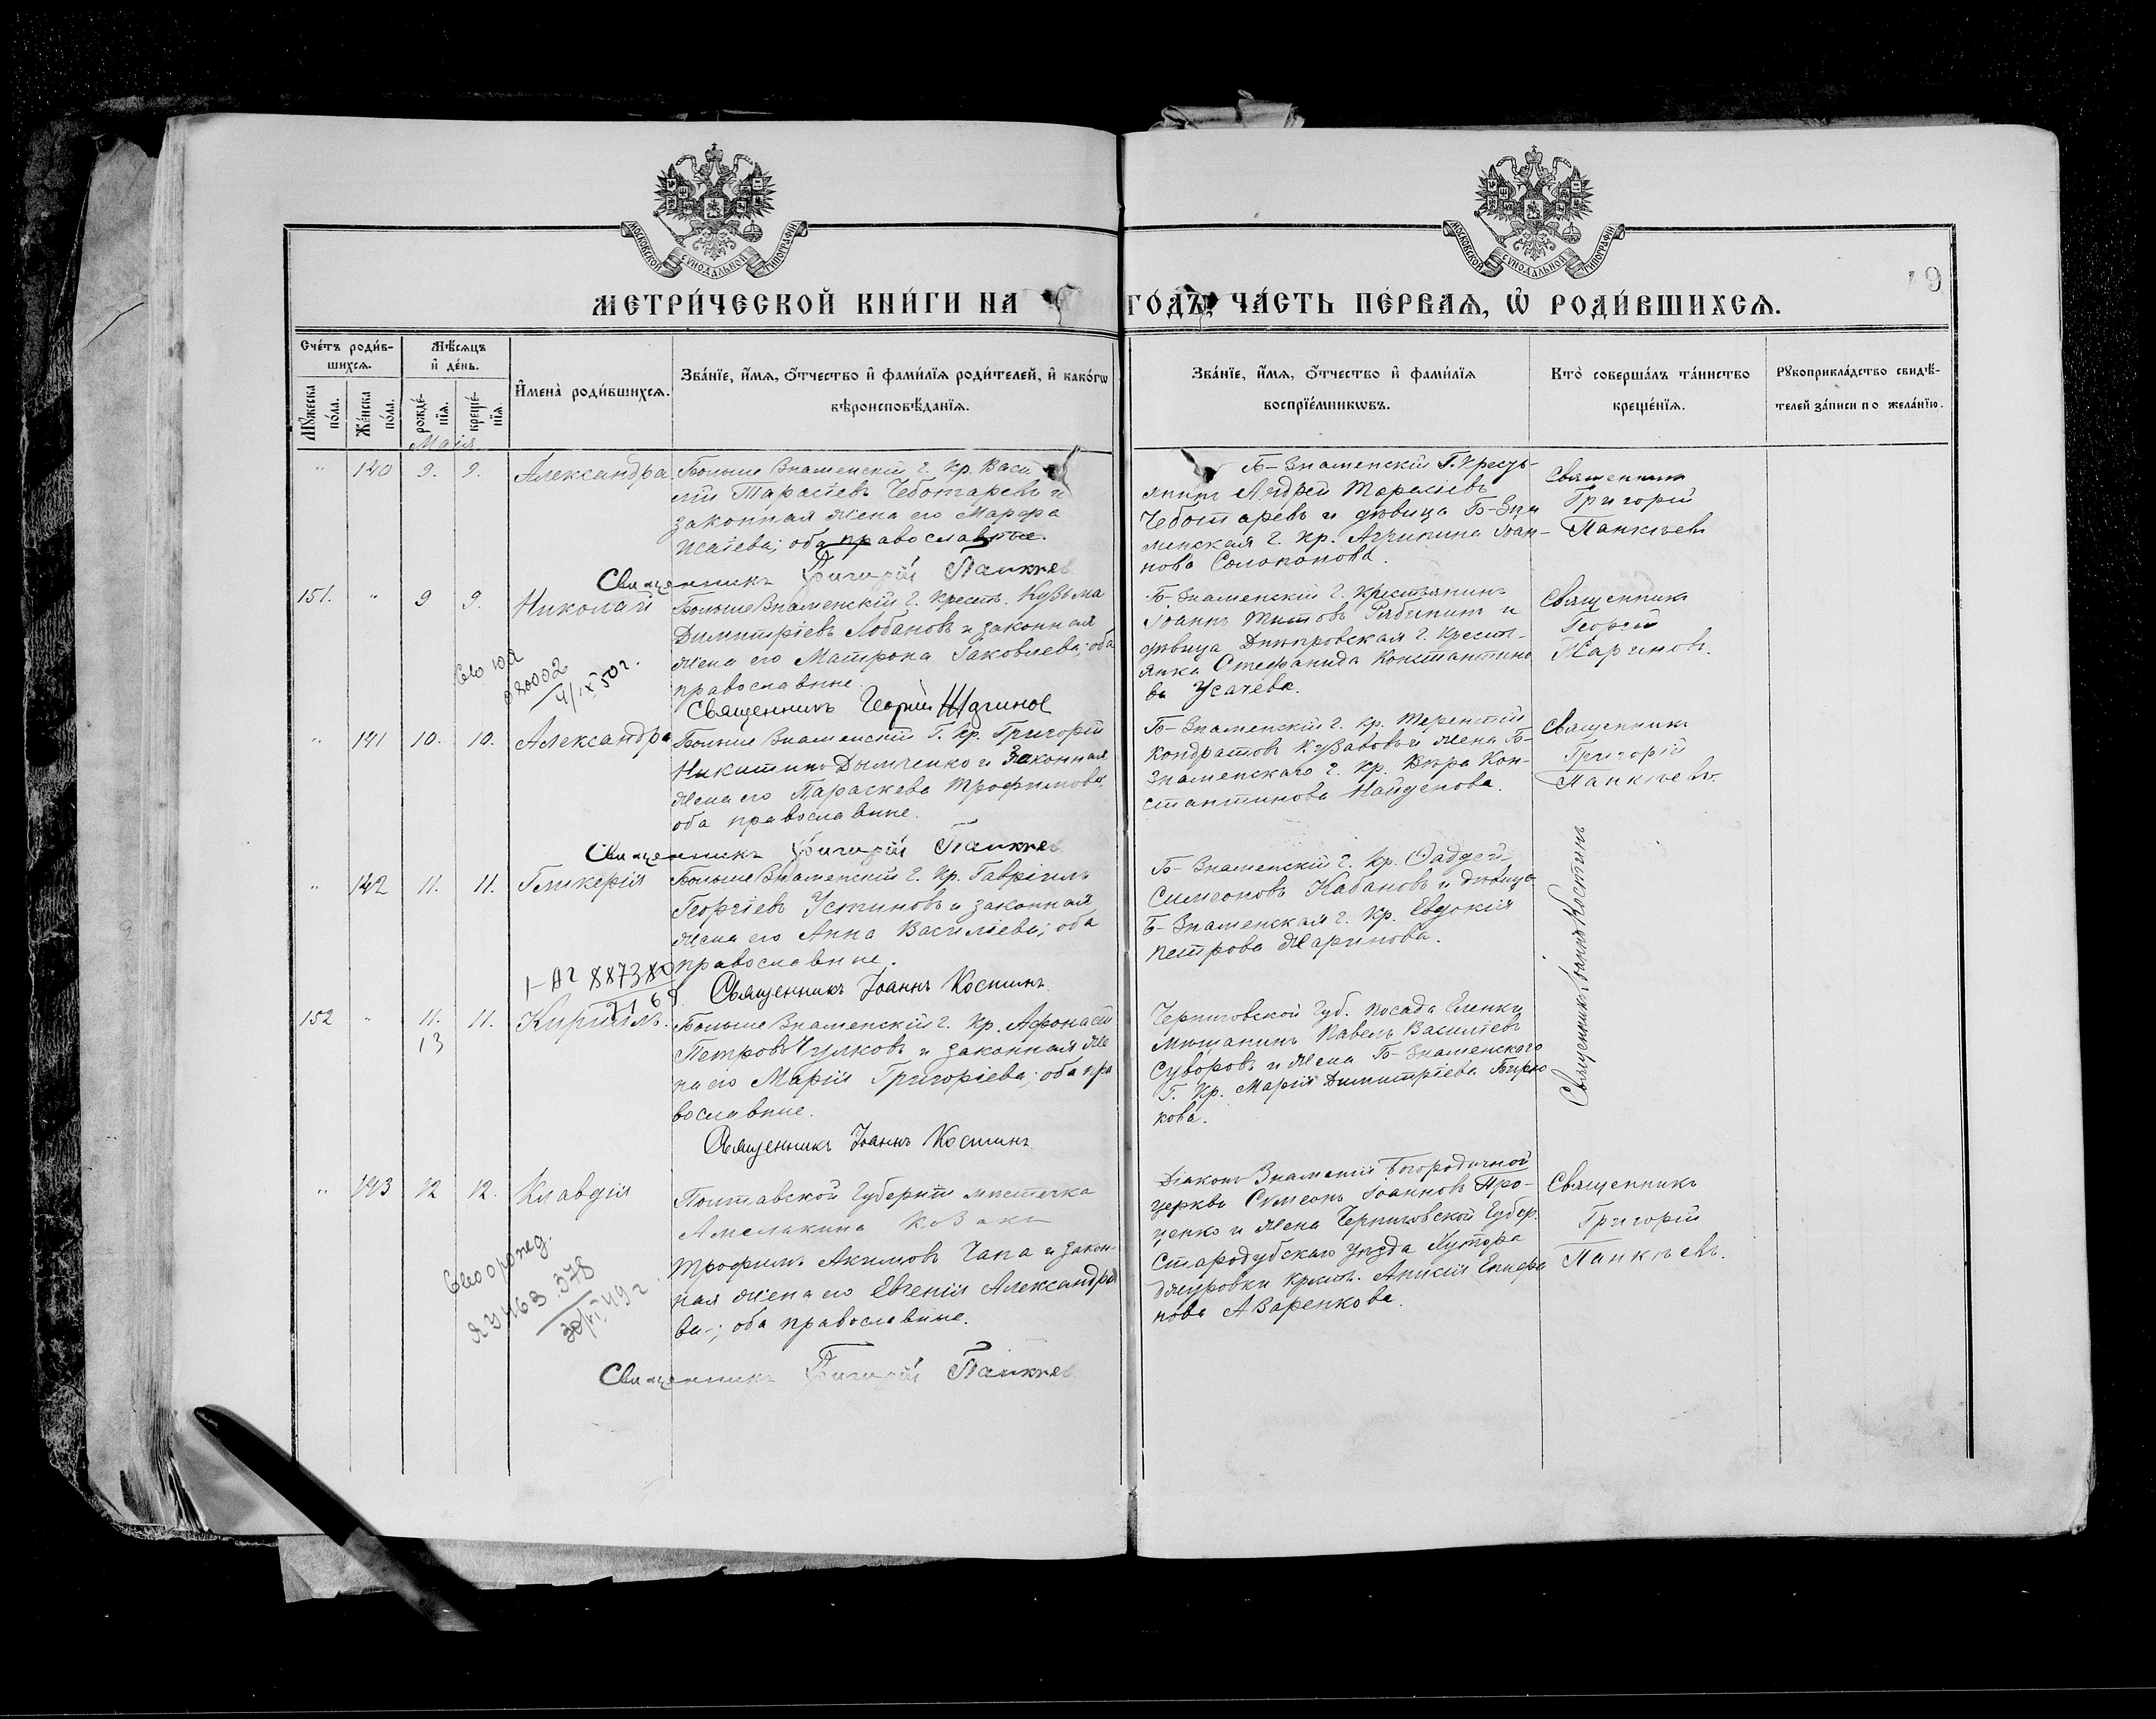 МОСКОВСКОЙ СѴНОДАЛЬНОЙ ТИПОГРАФІИ
МОСКОВСКОЙ СѴНОДАЛЬНОЙ ТИПОГРАФІИ
9
МЕТРИ́ЧЕСКОЙ КНИ́ГИ НА ГО́ДЪ, ЧА́СТЬ ПЕ́РВАѦ, Ѽ РОДИ́ВШИХСѦ.
Сче́тъ роди́в-
шихсѧ.
Мѣ́сѧцъ
и҆ де́нь.
Мꙋ́жеска
по́ла.
Же́нска
по́ла.
рожде́-
нїѧ.
креще́-
нїѧ.
И҆мена̀ роди́вшихсѧ.
Зва́нїе, и҆́мѧ, ѻ҆́тчество и҆ фами́лїѧ роди́телей, и҆ како́гѡ
вѣроисповѣ́данїѧ.
Зва́нїе, и҆́мѧ, ѻ҆́тчество и҆ фами́лїѧ
воспрїе́мникѡвъ.
Кто̀ соверша́лъ та́инство
креще́нїѧ.
Рꙋкоприкла́дство свидѣ́-
телей за́писи по жела́нїю.
Маія
" 140 9. 9. Александра
Больше Знаменскій г. кр. Васи
лій Тарасіевъ Чеботаревъ и
законная жена его Марфа
Исаіева; оба православные.
Священникъ Григорій Панкѣев
Б-Знаменскій Г. Кресть-
янинъ Андрей Тарасіевъ
Чеботаревъ и дѣвица Б-Зна
менская г. кр. Агрипина Іоан-
нова Солопонова.
Священникъ
Григорій
Панкѣевъ
151. " 9 9. Николай
Больше Знаменскій г. крест. Кузьма
Димитріевъ Лобановъ и законная
жена его Матрона Іаковлева; оба
православные.
Священникъ Георгій Жаринов
4/IX 50 г.
Б-Знаменскій г. крестьянинъ
Іоаннъ Титовъ Рябининъ и
дѣвица Днѣпровская г. крест-
янка Стефанида Константино
ва Усачева.
Священникъ
Георгій
Жариновъ.
" 141 10. 10. Александра
Больше Знаменскій Г. кр. Григорій
Никитинъ Дымченко и законная
жена его Параскева Трофимова;
оба православные.
Священникъ Григорій Панкѣев
Б-Знаменскій г. кр. Терентій
Кондратовъ Кузавовъ и жена Б-
Знаменскаго г. кр. Вѣра Кон-
стантинова Найденова.
Священникъ
Григорій
Панкѣевъ.
" 142 11. 11. Гликерія
Больше Знаменскій г. кр. Гавріилъ
Георгіевъ Устиновъ и законная
жена его Анна Василіева; оба
православные.
Священникъ Іоаннъ Костинъ
887380
Б-Знаменскій г. кр. Ѳаддей
Симеоновъ Кабановъ и дѣвица
Б-Знаменская г. кр. Евдокія
Петрова Жаринова.
Священникъ Іоаннъ Костинъ
152 " 11. 11. Кириллъ.
13
Больше Знаменскій г. кр. Афонасій
Петровъ Чулковъ и законная же
на его Марія Григоріева; оба пра
вославные.
Священникъ Іоаннъ Костинъ
Черниговской Губ. посада Еленки
мѣщанинъ Павелъ Василіевъ
Суворовъ и жена Б-Знаменскаго
Г. кр. Марія Димитріева Бирю
кова.
" 143 12 12. Клавдія
Полтавской Губерніи мѣстечка
Амелькина козакъ
Трофимъ Акимовъ Чапа и закон-
ная жена его Евгенія Александро
ва; оба православные.
Священникъ Григорій Панкѣев
30/VI 49 г
Діаконъ Знаменія Богородичной
церкви Симеонъ Іоанновъ Про-
ценко и жена Черниговской Губер.
Стародубскаго уѣзда Хутора
крест. Анисія Епифа
нова Азаренкова.
Священникъ
Григорій
Панкѣевъ.